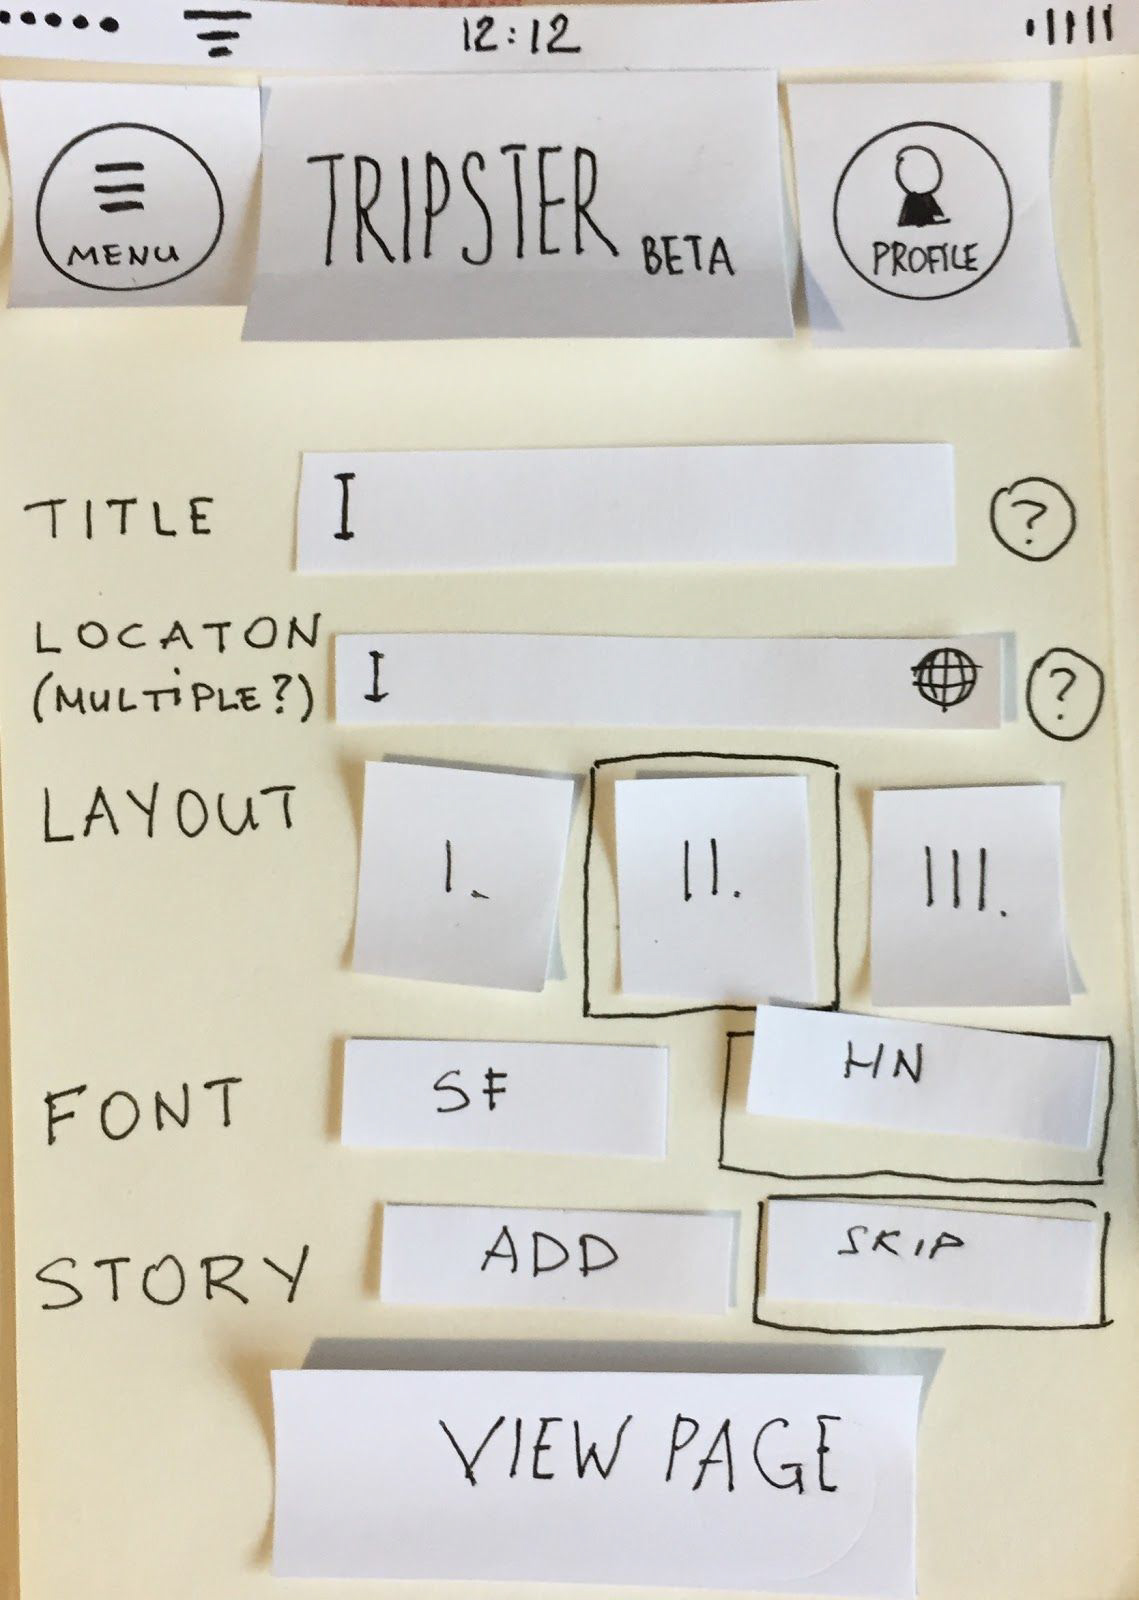 12:12
MENU
TRIPSTER BETA
PROFILE
TITLE
I
?
LOCATON
(MULTIPLE?)
I
?
LAYOUT
I.
II.
III.
FONT
SF
HN
STORY
ADD
SKIP
VIEW PAGE